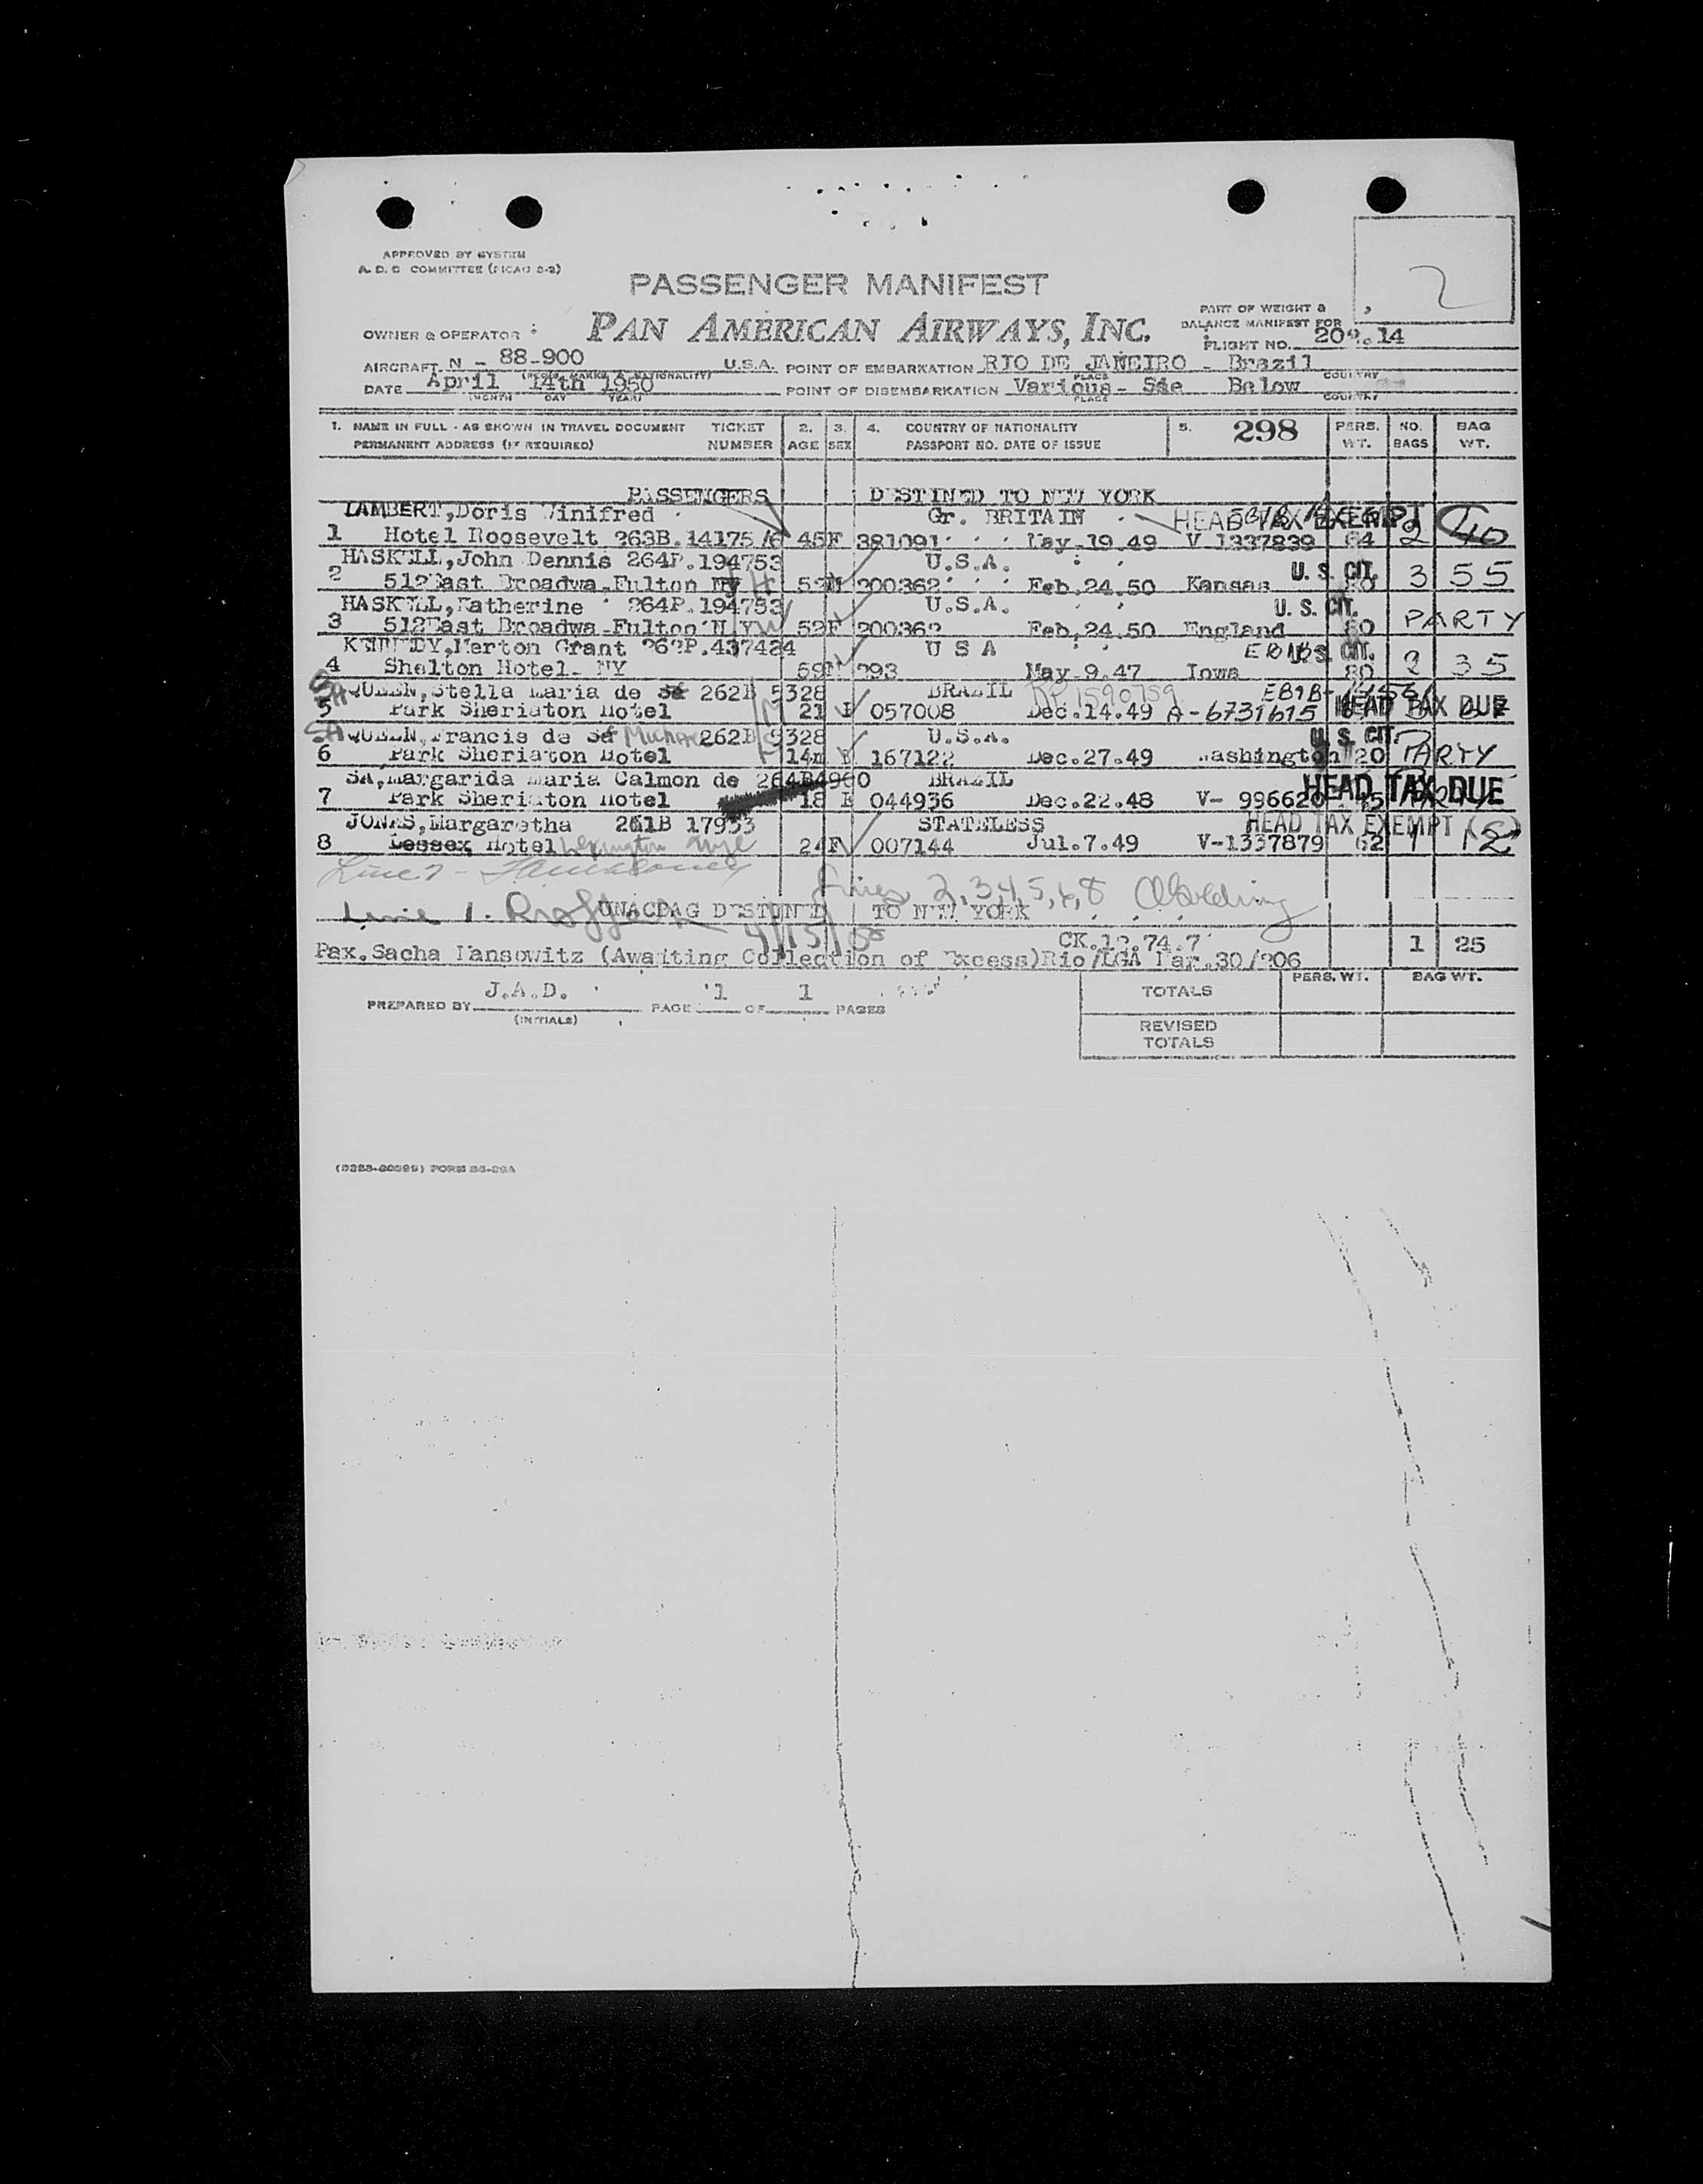 2
APPROVED BY SYSTEM
A. D. D COMMITTEE (PICAO 2-2)
PASSENGER MANIFEST
PART OF WEIGHT &
BALANCE MANIFEST FOR
OWNER & OPERATOR : PAN AMERICAN AIRWAYS, INC.
FLIGHT NO. 14
AIRCRAFT N - 88-900 U.S.A. POINT OF EMBARKATION RIO DE JANEIRO - Brazil
(REGIS. MARKS & NATIONALITY) PLACE COUNTRY
DATE April 14th 1950 POINT OF DISEMBARKATION Various - See Below
MONTH DAY YEAR PLACE COUNTRY
1. NAME IN FULL - AS SHOWN IN TRAVEL DOCUMENT TICKET 2. 3. 4. COUNTRY OF NATIONALITY 5. 298 PERS. NO. BAG
PERMANENT ADDRESS (IF REQUIRED) NUMBER AGE SEX PASSPORT NO. DATE OF ISSUE WT. BAGS WT.
PASSENGERS DESTINED TO NEW YORK
LAMBERT, Doris Winifred Gr. BRITAIN HEAD TAX EXEMPT
1 Hotel Roosevelt 263B.14175/6 45 F 381091 May.19.49 V 1337839 64 2 40
HASKELL, John Dennis 264P.194753 U.S.A. U. S. CIT.
2 512East Broadwa.Fulton NY 200362 Feb.24.50 Kansas 80 3 55
HASKELL, Katherine 264P.194753 U.S.A. U. S. CIT.
3 512East Broadwa-Fulton N Y 52 F 200362 Feb.24.50 England PARTY
KENNEDY, Merton Grant 262P.437424 U S A U. S. CIT.
4 Shelton Hotel. NY 59 M 293 May.9.47 Iowa 80 2 35
SA QUEEN, Stella Maria de Sá 262B 5328 BRAZIL RP 1590759
5 Park Sheriaton Hotel 21 F 057008 Dec.14.49 A-6731615 HEAD TAX DUE
SA QUEEN, Francis de Sá Michael 262B 5328 U.S.A. U. S. CIT.
6 Park Sheriaton Hotel 14m 167122 Dec.27.49 Washington 20 PARTY
SA, Margarida Maria Calmon de 264B4960 BRAZIL
7 Park Sheriaton Hotel 18 F 044936 Dec.22.48 V- 996620 HEAD TAX DUE
JONAS, Margaretha 261B 17953 STATELESS HEAD TAX EXEMPT
8 Lessex Hotel Lexington 24 F 007144 Jul.7.49 V-1337879 62 1 12
Line 7 -
Lines 2,3,4,5,6,8
Line 1. UNACBAG DESTINED TO NEW YORK
4/15/50
CK.12.74.7 1 25
Pax. Sacha Mansowitz (Awaiting Collection of Excess) Rio/LGA Mar.30/206
PERS. WT. BAG WT.
PREPARED BY J.A.D. PAGE 1 OF 1 PAGES TOTALS
(INITIALS)
REVISED
TOTALS